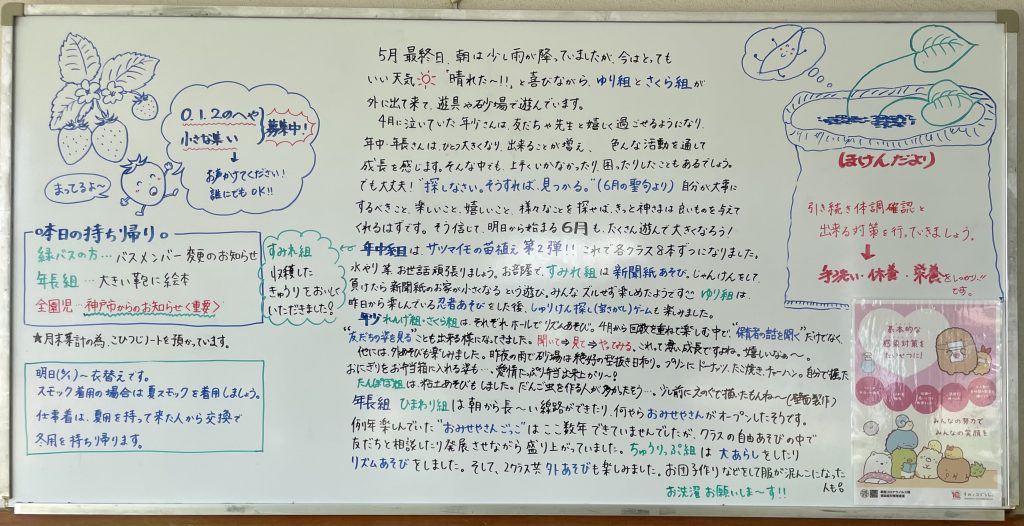 0.1.2のへや
小さな集い
募集中!
↓
お声かけてください!
誰にでもOK!!
まってるよ~
本日の持ち帰り
緑バスの方…バスメンバー変更のお知らせ
年長組…大きい鞄に絵本
全園児…神戸市からのお知らせ<重要>
★月末集計の為、こひつじノートを預かっています。
明日(6/1)~衣替えです。
スモック着用の場合は夏スモックを着用しましょう。
仕事着は、夏用を持って来た人から交換で
冬用を持ち帰ります。
すみれ組
収穫した
きゅうりをおいしく
いただきました!
5月最終日、朝は少し雨が降っていましたが、今はとっても
いい天気 "晴れた~!!"と喜びながら、ゆり組とさくら組が
外に出て来て、遊具や砂場で遊んでいます。
4月に泣いていた年少さんは、友だちや先生と嬉しく過ごせるようになり、
年中・年長さんは、ひとつ大きくなり、出来ることが増え、色んな活動を通して
成長を感じます。そんな中でも、上手くいかなかったり、困ったりしたこともあるでしょう。
でも大丈夫!"探しなさい。そうすれば、見つかる。"(6月の聖句より)自分が大事に
するべきこと、楽しいこと、嬉しいこと、様々なことを探せば、きっと神さまは良いものを与えて
くれるはずです。そう信じて、明日から始まる6月も、たくさん遊んで大きくなろう!
年中組は、サツマイモの苗植え第2弾!!これで各クラス8本ずつになりました。
水やり等お世話頑張りましょう。お部屋で、すみれ組は新聞紙あそび。じゃんけんをして、
負けたら新聞紙のお家が小さくなるという遊び。みんなズルせず楽しめたようです ゆり組は、
昨日から楽しんでいる忍者あそびをした後、しゅりけん探し(宝さがし)ゲームも楽しみました。
年少 れんげ組・さくら組は、それぞれホールでリズムあそび。4月から回数を重ねて楽しむ中で、"保育者の話を聞く"だけでなく、
"友だちの姿を見る"ことも出来る様になってきました。聞いて→見て→やってみる、これって凄い成長ですよね。嬉しいなぁ~。
他には、外あそびも楽しみました。昨夜の雨で砂場は絶好の型抜き日和。プリンにドーナツ、たこ焼き、チャーハン。自分で握った
おにぎりをお弁当箱に入れる姿も…愛情たっぷり弁当出来上がり~♪
たんぽぽ組は、粘土あそびもしました。だんご虫を作る人が多かったそう…少し前にえのぐで描いたもんね~(壁面製作)
年長組 ひまわり組は朝から長~い線路ができたり、何やらおみせやさんがオープンしたそうです。
例年楽しんでいた"おみせやさんごっこ"はここ数年できていませんでしたが、クラスの自由あそびの中で
友だちと相談したり発展させながら盛り上がっていました。ちゅうりっぷ組は大あらしをしたり
リズムあそびをしました。そして、2クラス共外あそびも楽しみました。お団子作りなどをして服が泥んこになった
人も。
お洗濯お願いしま~す!!
ほけんだより
引き続き体調確認と
出来る対策を行っていきましょう。
↓
手洗い・休養・栄養をしっかり!!
です。
基本的な
感染対策を
たいせつに!
みんなの努力で
みんなの笑顔を